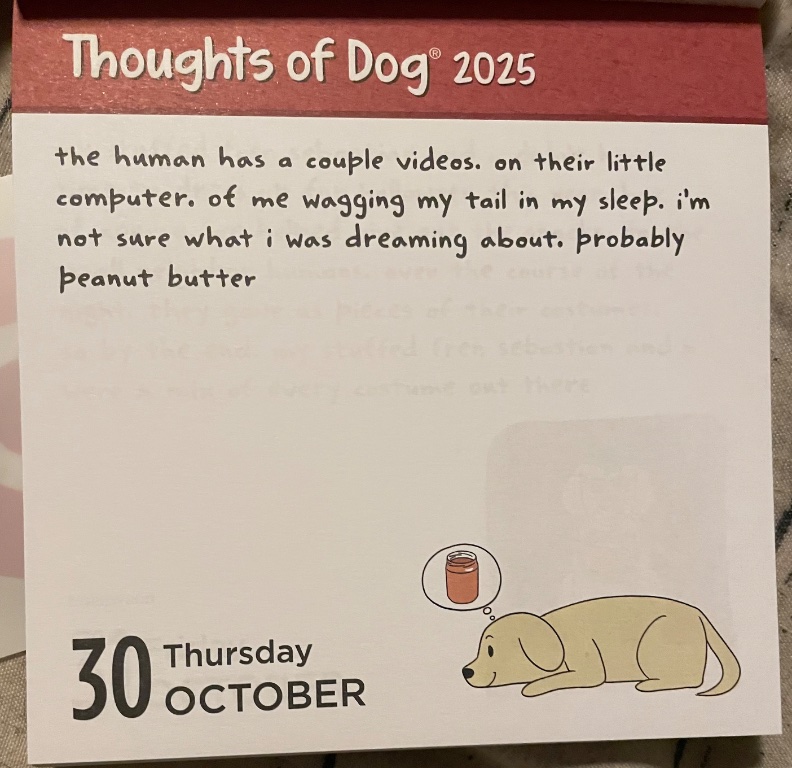 Thoughts of Dog® 2025
the human has a couple videos. on their little
computer. of me wagging my tail in my sleep. i'm
not sure what i was dreaming about. probably
peanut butter
30 Thursday
OCTOBER